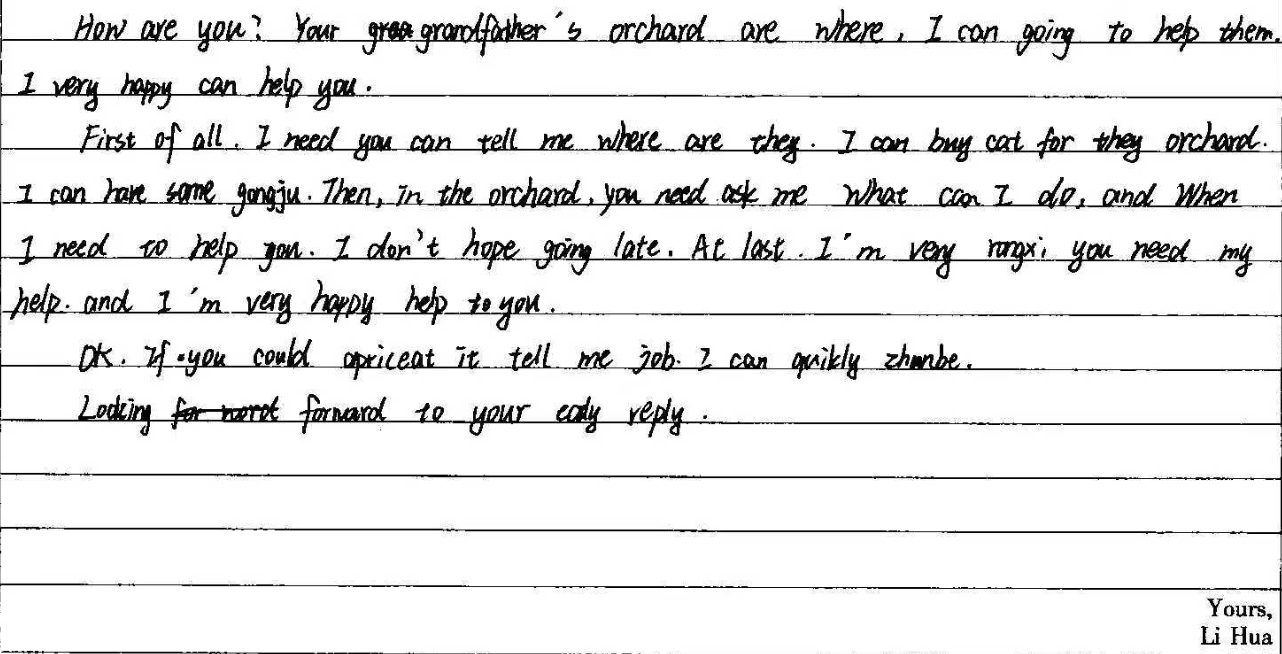 How are you? Your grea grandfather's orchard are where, I can going to help them.
I very happy can help you.
First of all. I need you can tell me where are they. I can buy cat for they orchard.
I can have some gongju. Then, in the orchard, you need ask me what can I do, and When
I need to help you. I don't hope going late. At last. I'm very rongxi, you need my
help. and I'm very happy help to you.
OK. If you could apriceat it tell me job. I can quikly zhunbe.
Looking for forward to your eady reply.
Yours,
Li Hua